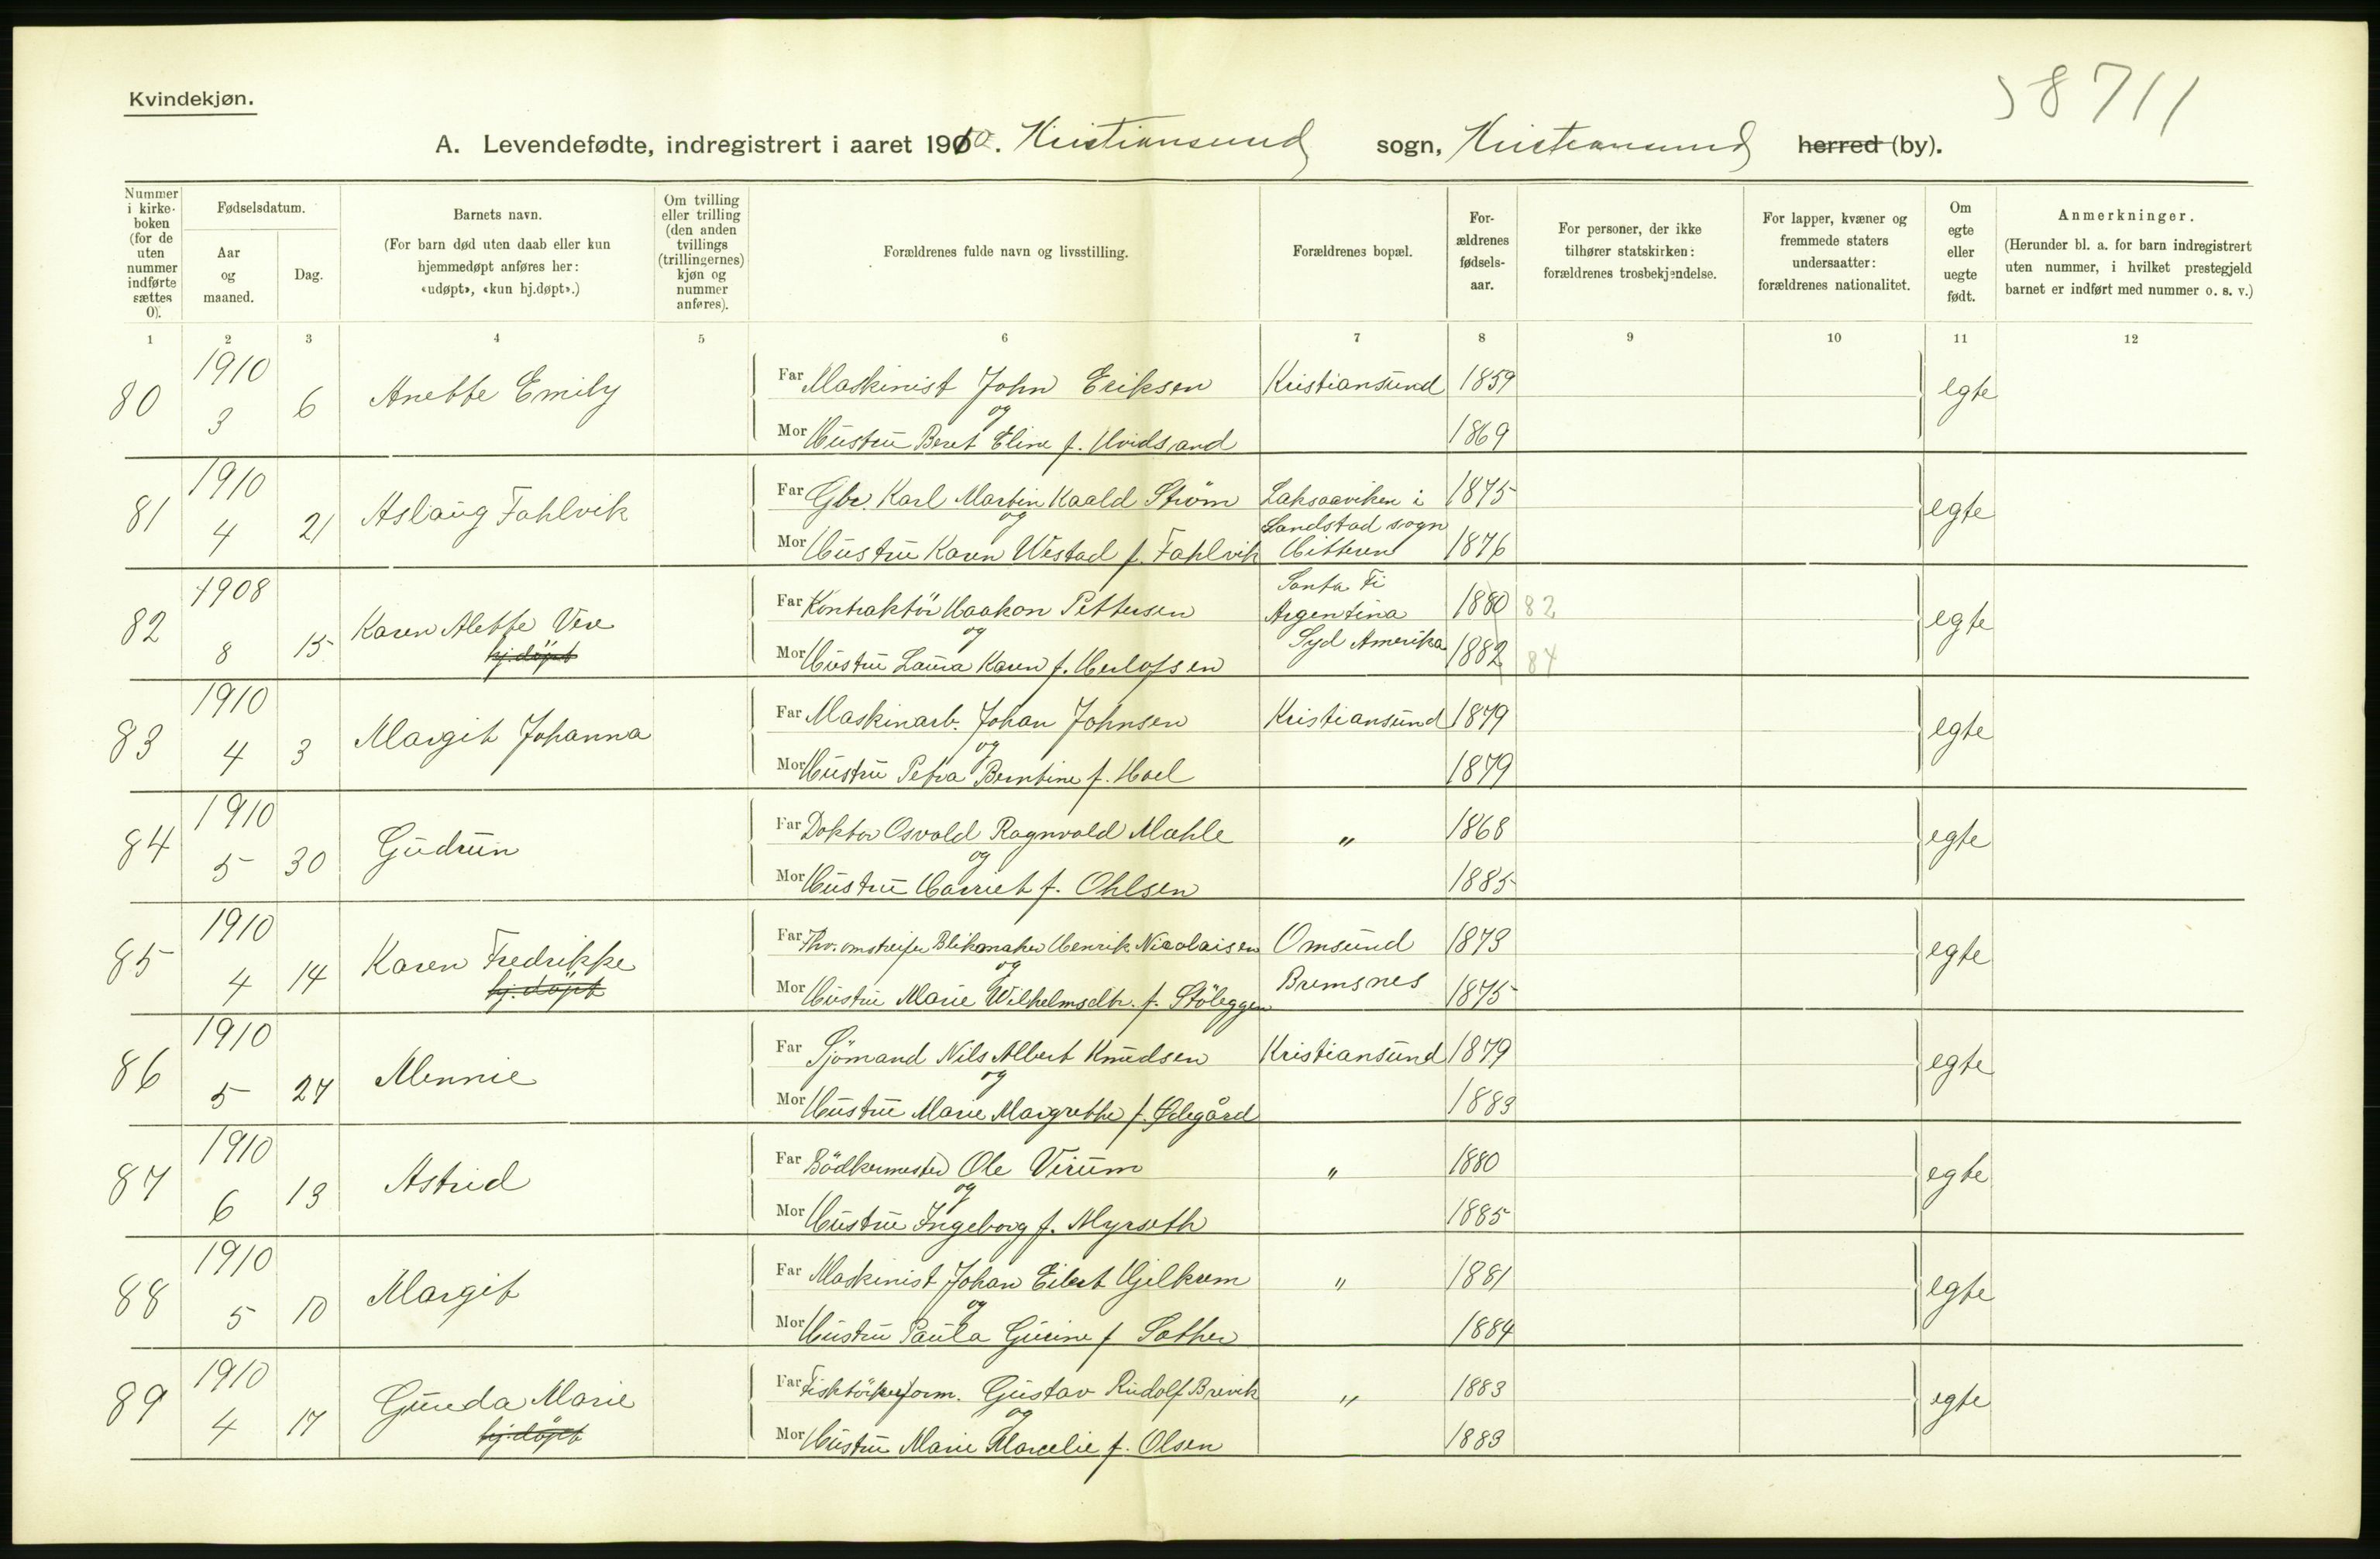 Kvindekjøn.
58711
A. Levendefødte, indregistrert i aaret 1910. Kristiansund sogn, Kristiansund herred (by).
Nummer i kirkeboken (for de uten nummer indførte sættes 0).
Fødselsdatum.
Aar og maaned.
Dag.
Barnets navn.
(For barn død uten daab eller kun hjemmedøpt anføres her: «udøpt», «kun hj.døpt».)
Om tvilling eller trilling (den anden tvillings (trillingernes) kjøn og nummer anføres).
Forældrenes fulde navn og livsstilling.
Forældrenes bopæl.
Forældrenes fødselsaar.
For personer, der ikke tilhører statskirken: forældrenes trosbekjendelse.
For lapper, kvæner og fremmede staters undersaatter: forældrenes nationalitet.
Om egte eller uegte født.
Anmerkninger.
(Herunder bl. a. for barn indregistrert uten nummer, i hvilket prestegjeld barnet er indført med nummer o. s. v.)
1 2 3 4 5 6 7 8 9 10 11 12
80 1910 3 6 Anette Emily
Far Maskinist John Eriksen Kristiansund 1859 egte
og
Mor Hustru Beret Eline f. Hvidsand 1869
81 1910 4 21 Aslaug Fahlvik
Far Gbr. Karl Martin Kaald Strøm Laksaaviken i 1875 egte
og Sandstad sogn
Mor Hustru Karen Westad f. Fahlvik Hitteren 1876
82 1908 8 15 Karen Alette Vere hj.döpt
Far Kontraktör Haakon Pettersen Santa Fi Argentina 1880 82 egte
og Syd Amerika
Mor Hustru Laura Karen f. Herlofsen 1882 84
83 1910 4 3 Margit Johanna
Far Maskinarb. Johan Johnsen Kristiansund 1879 egte
og
Mor Hustru Petra Berntine f. Hoel 1879
84 1910 5 30 Gudrun
Far Doktor Osvald Ragnvald Mæhle " 1868 egte
og
Mor Hustru Harriet f. Ohlsen 1885
85 1910 4 14 Karen Fredrikke hj.döpt
Far Fhv. omstreifer Blikmaker Henrik Nicolaisen Omsund 1873 egte
og
Mor Hustru Marie Wilhelmsdtr. f. Stöleggen Bremsnes 1875
86 1910 5 27 Mennie
Far Sjömand Nils Albert Knudsen Kristiansund 1879 egte
og
Mor Hustru Marie Margrethe f. Ødegård 1883
87 1910 6 13 Astrid
Far Bödkermester Ole Virum " 1880 egte
og
Mor Hustru Ingeborg f. Myrseth 1885
88 1910 5 10 Margit
Far Maskinist Johan Eilert Gjelkrem " 1881 egte
og
Mor Hustru Paula Gurine f Sather 1884
89 1910 4 17 Gunda Marie hj.döpt
Far Fisktörkerform. Gustav Rudolf Brevik " 1883 egte
og
Mor Hustru Marie Marcelie f. Olsen 1883